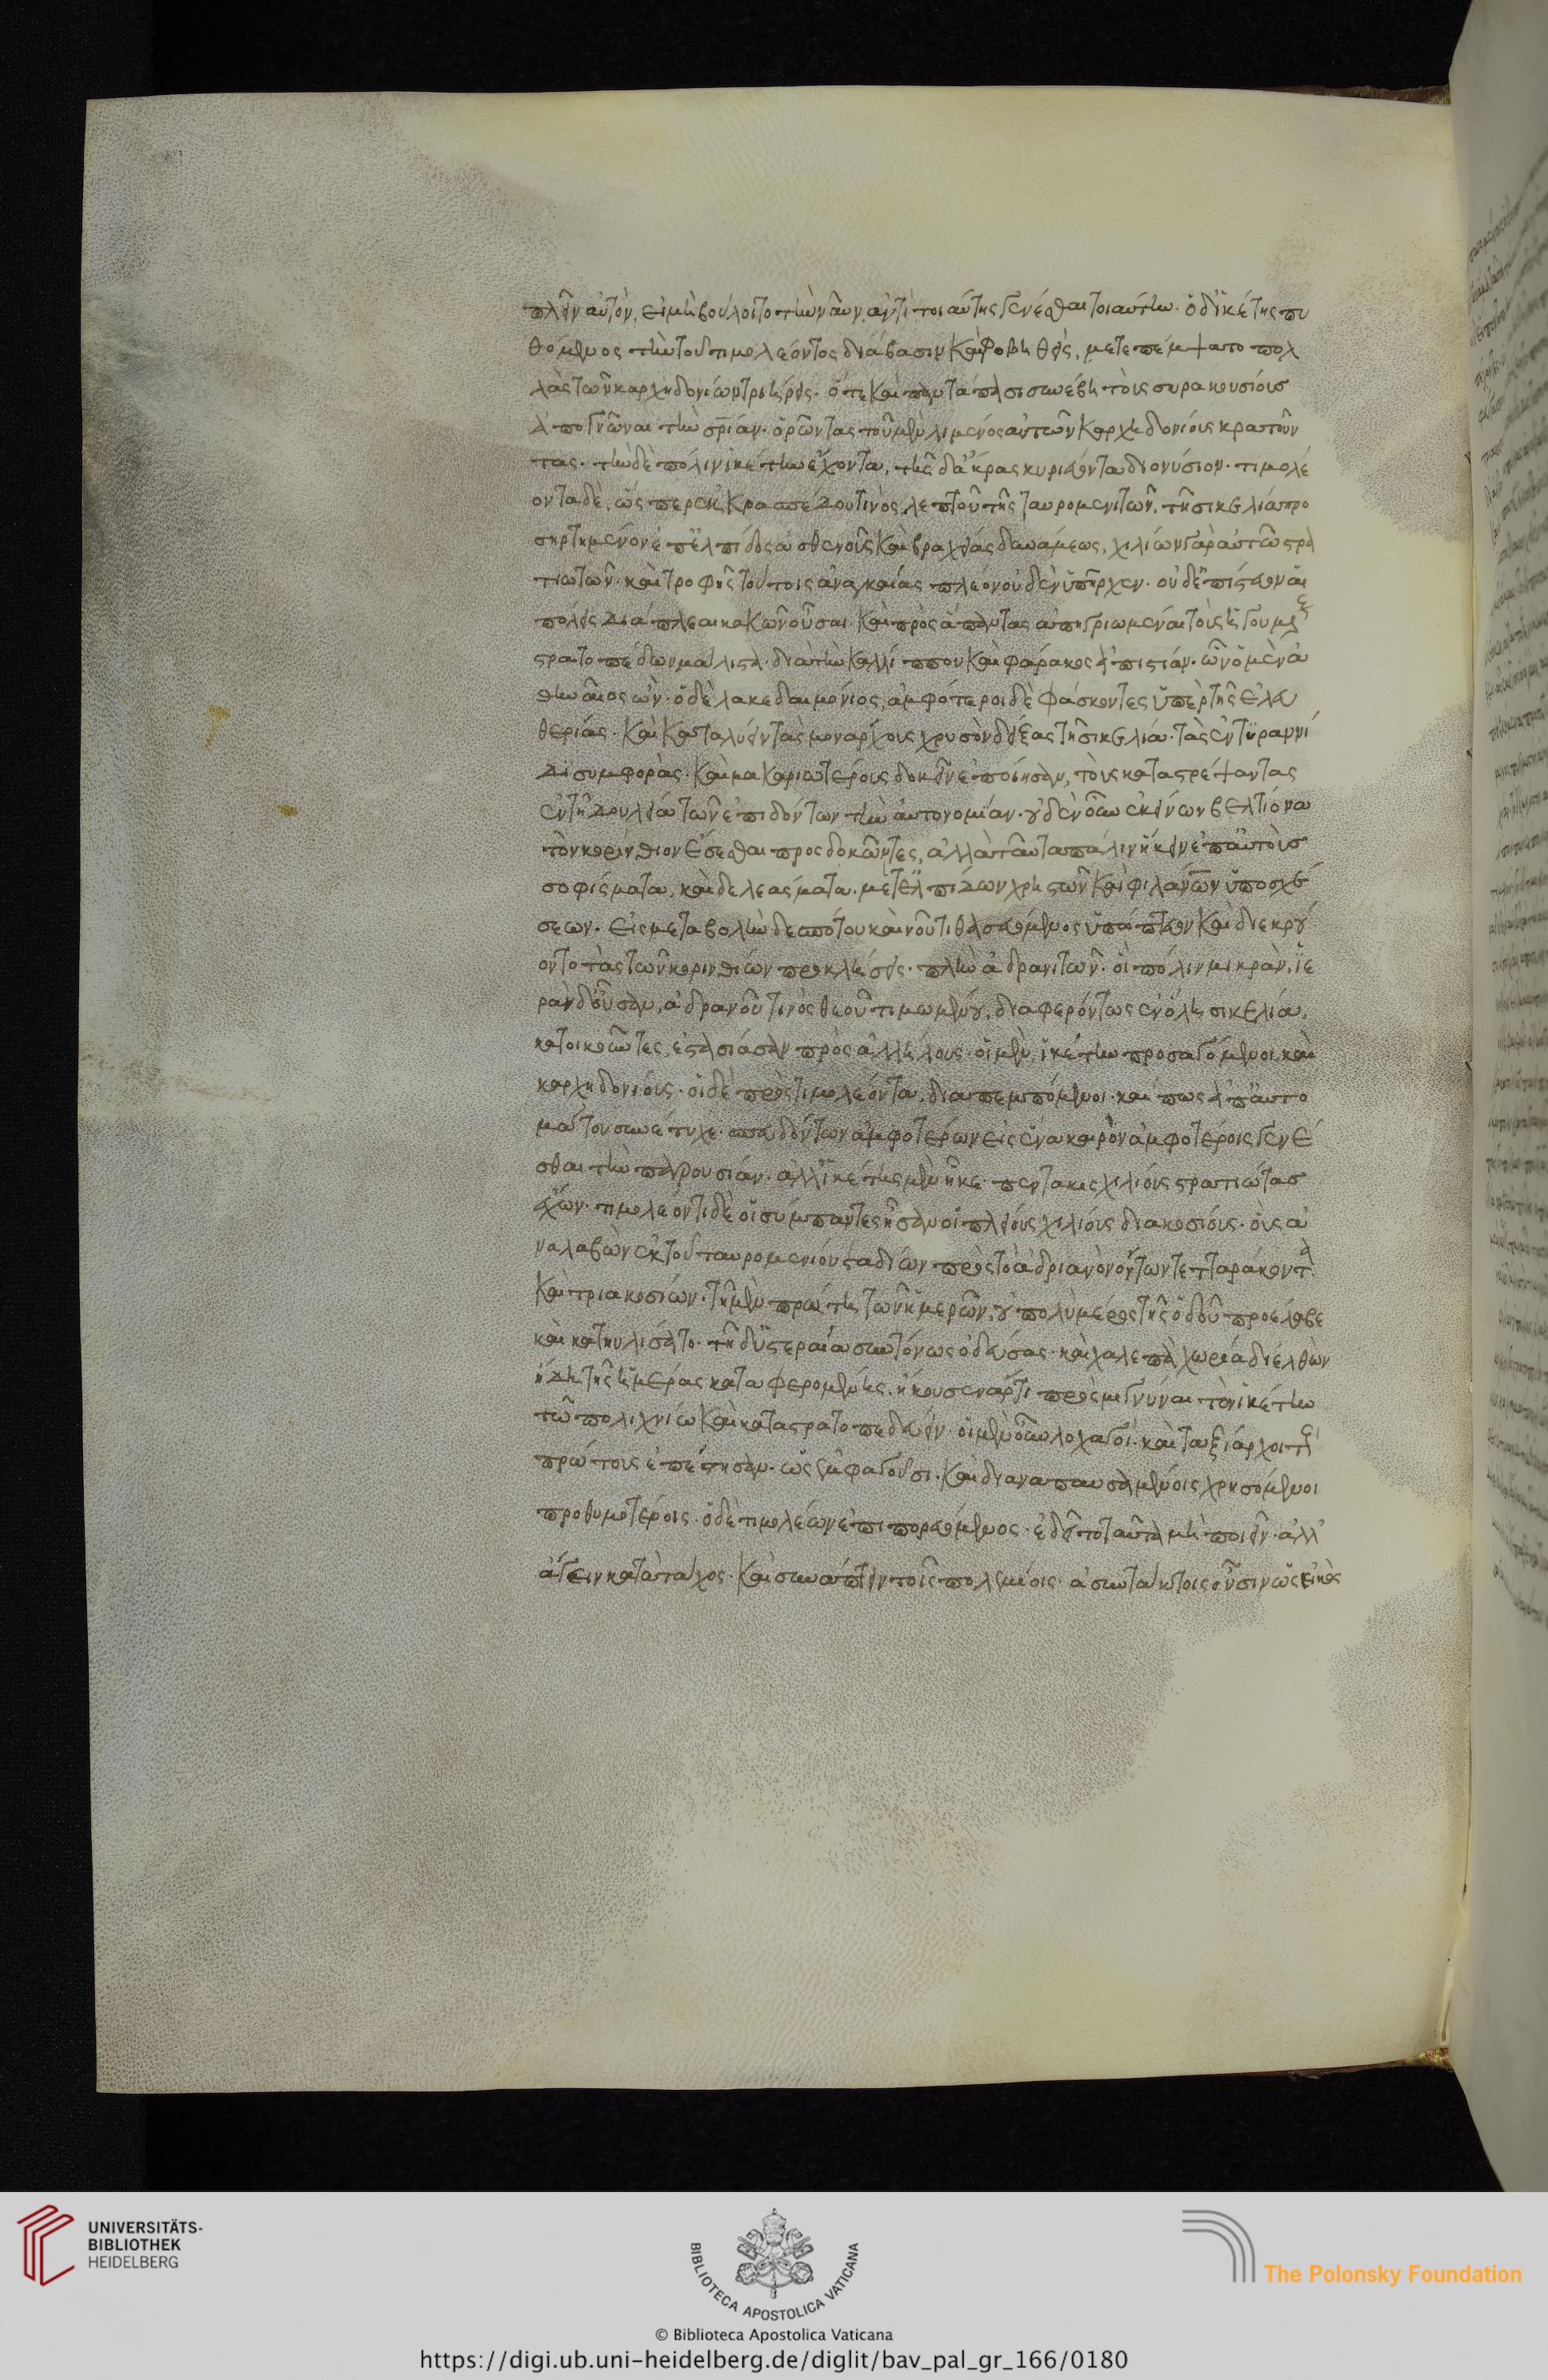 πλεῖν αὐτὸν, εἰ μὴ βούλοιτο τὴν ναῦν ἀντὶ τοιαύτης γενέσθαι τοιαύτην. ὁ δ' ἱκέτης πυ
θόμενος τὴν τοῦ τιμολέοντος διάβασιν καὶ φοβηθεὶς, μετεπέμψατο πολ
λὰς τῶν καρχηδονίων τριήρεις. ὅτε καὶ παντάπασι συνέβη τοὺς συρακουσίους
ἀπογνῶναι τὴν σρίαν. ὁρῶντας τοῦ μὲν λιμένος αὐτῶν καρχηδονίους κρατοῦν
τας. τὴν δὲ πόλιν ἱκέτην ἔχοντα, τῆς δ' ἄκρας κυριεύοντα διονύσιον. τιμολέ
οντα δὲ, ὥσπερ ἐκ κρασπέδου τινὸς λεπτοῦ τῆς ταυρομενιτῶν, τῇ σικελίᾳ προ
σηρτημένον ἐπ' ἐλπίδος ἀσθενοῦς καὶ βραχείας δυνάμεως, χιλίων γὰρ αὐτῶ στρα
τιωτῶν. καὶ τροφῆς τούτοις ἀναγκαίας πλέον οὐδὲν ὑπῆρχεν. οὐδ' ἐπίστευον αἱ
πόλεις διάπλεαι κακῶν οὖσαι. καὶ πρὸς ἅπαντας ἀπηγριωμέναι τοὺς ἡγουμέ
στρατοπέδων μάλιστα διὰ τὴν καλλίππου καὶ φάρακος ἀπιστίαν. ὧν ὁ μὲν ἀ
θηναῖος ὢν. ὁ δὲ λακεδαιμόνιος, ἀμφότεροι δὲ φάσκοντες ὑπὲρ τῆς ἐλευ
θερίας. καὶ καταλύειν τὰς μοναρχίας χρυσὸν ἔδειξας τῇ σικελίᾳ. τὰς ἐν τυραννί
δι συμφοράς. καὶ μακαριωτέρους δοκεῖν ἐποίησαν, τοὺς καταστρέψαντας
ἐν τῇ δουλείᾳ τῶν ἐπιδόντων τὴν αὐτονομίαν. οὐδὲν οὖν ἐκείνων βελτίονα
τὸν κορίνθιον ἔσεσθαι προσδοκῶντες, ἀλλὰ ταῦτα πάλιν ἥκειν ἐπ' αὐτοὺς
σοφίσματα, καὶ δελεάσματα. μετ' ἐλπίδων χρηστῶν καὶ φιλανων ὑποσχέ
σεων. εἰς μεταβολὴν δεσπότου καινοῦ τιθασευόμενος ὑπώπτευον καὶ διεκρού
οντο τὰς τῶν κορινθίων προκλήσεις. πλὴν ἀδρανιτῶν. οἳ πόλιν μικρὰν, ἱε
ρὰν δ' οὖσαν, ἀδρανοῦ τινὸς θεοῦ τιμωμένου, διαφερόντως ἐν ὅλῃ σικελίᾳ,
κατοικοῦντες, ἐστασίασαν πρὸς ἀλλήλους. οἱ μὲν, ἱκέτην προσαγόμενοι καὶ
καρχηδονίους. οἱ δὲ πρὸς τιμολέοντα, διαπεμπόμενοι. καί πως ἀπ' αὐτο
μάτου συνέτυχε σπευδόντων ἀμφοτέρων εἰς ἕνα καιρὸν ἀμφοτέροις γενέ
σθαι τὴν παρουσίαν. ἀλλ' ἱκέτης μὲν ἧκε πεντακισχιλίους στρατιώτας
ἔχων. τιμολέοντι δὲ οἱ σύμπαντες ἦσαν οὐ πλείους χιλίοις διακοσίοις. οὓς ἀ
ναλαβὼν ἐκ τοῦ ταυρομενίου σταδίων πρὸς τὸ ἀδριανὸν ὄντων τετταράκοντα
καὶ τριακοσίων. τῇ μὲν πρώτῃ τῶν ἡμερῶν, οὐ πολὺ μέρος τῆς ὁδοῦ προέλαβε
καὶ κατηυλίσατο. τῇ δ' ὑστεραίᾳ συντόνως ὁδεύσας. καὶ χαλεπὰ χωρία διελθὼν
ἤδη τῆς ἡμέρας καταφερομένης. ἤκουσεν ἄρτι προσμιγνύναι τὸν ἱκέτην
τῷ πολιχνίῳ καὶ καταστρατοπεδεύειν. οἱ μὲν οὖν λοχαγοὶ. καὶ ταξίαρχοι τοὺς
πρώτους ἐπέστησαν. ὡς ἐμφαγοῦσι. καὶ διαναπαυσαμένοις χρησόμενοι
προθυμοτέροις. ὁ δὲ τιμολέων ἐπιπορευόμενος. ἐδεῖτο ταῦτα μὴ ποιεῖν. ἀλλ'
ἄγειν κατὰ τάχος. καὶ συνάπτειν τοῖς πολεμίοις. ἀσυντάκτοις οὖσιν ὡς εἰκὸς
UNIVERSITÄTS-
BIBLIOTHEK
HEIDELBERG
BIBLIOTECA APOSTOLICA VATICANA
The Polonsky Foundation
© Biblioteca Apostolica Vaticana
https://digi.ub.uni-heidelberg.de/diglit/bav_pal_gr_166/0180